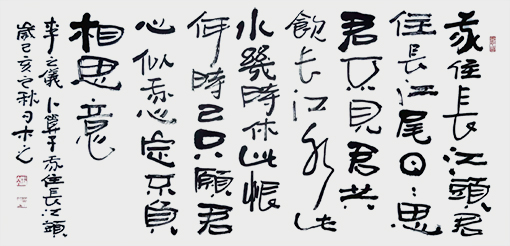 我住長江頭君
住長江尾日日思
君不見君共
飲長江水此
水幾時休此恨
何時已只願君
心似我心定不負
相思意
李之儀卜算子我住長江頭
歲己亥之秋